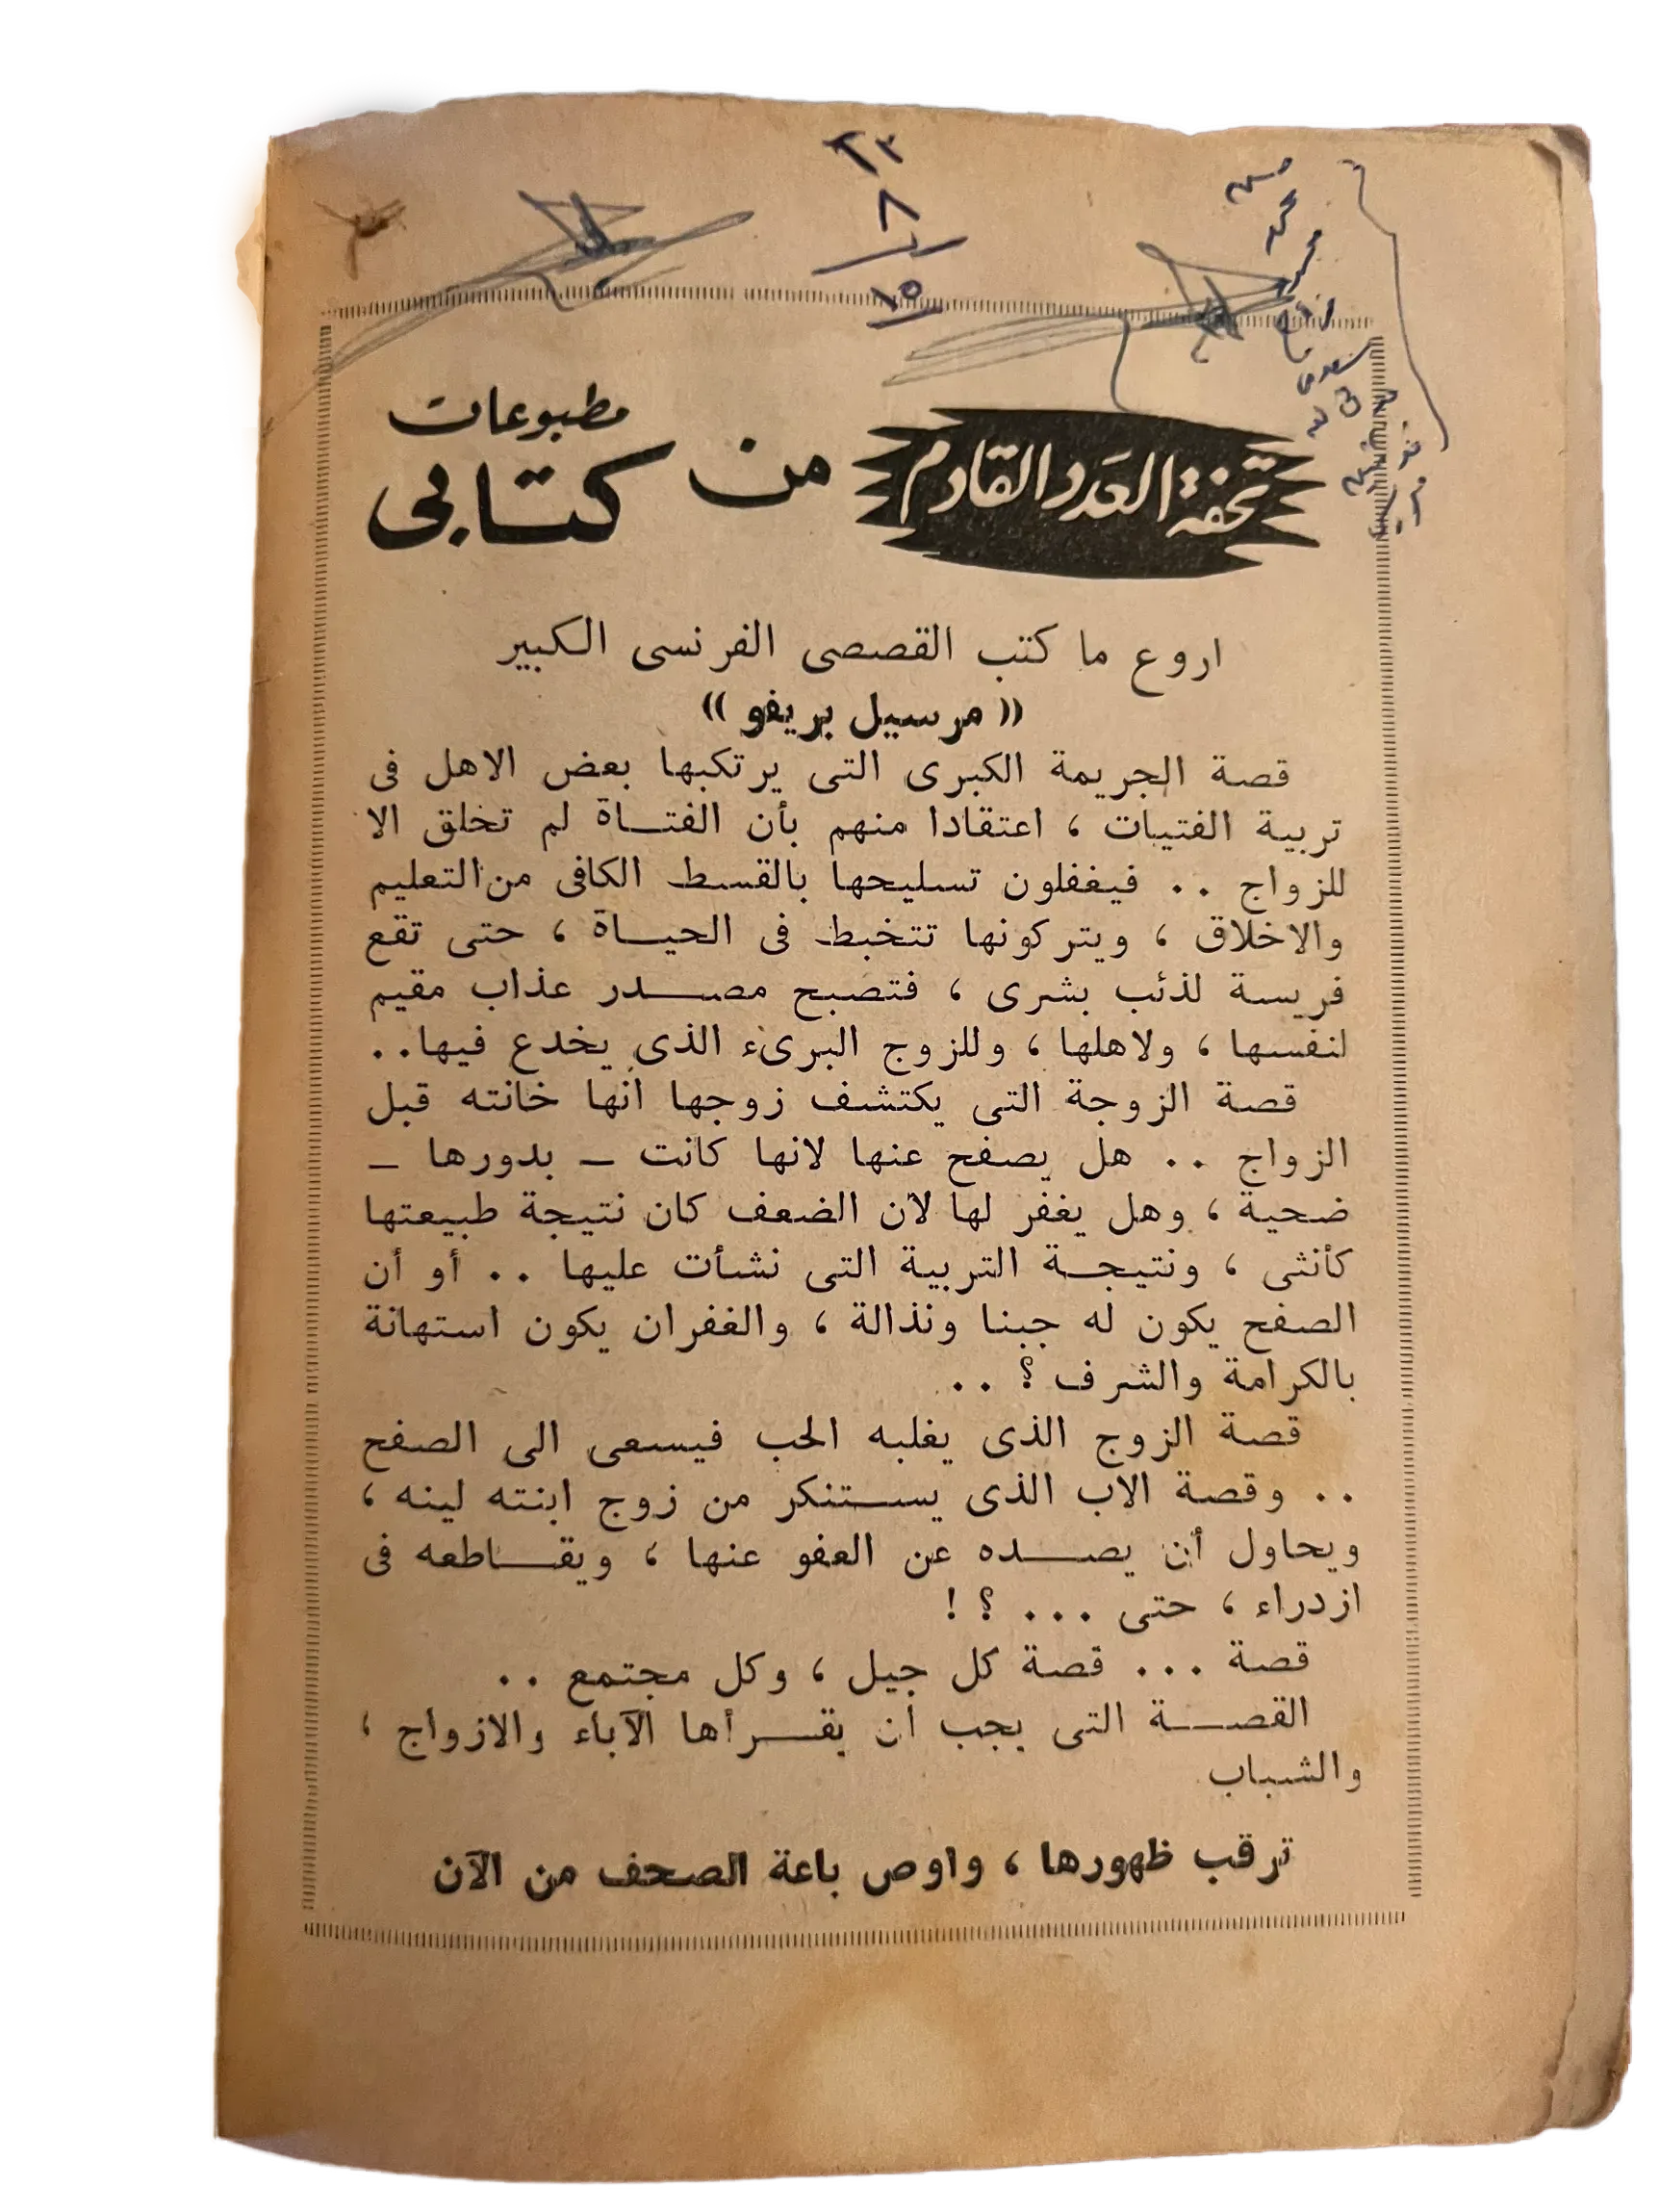 ٢٣
٨
١٥
تحفة العدد القادم من مطبوعات كتابى
اروع ما كتب القصصى الفرنسى الكبير
« مرسيل بريفو »
قصة الجريمة الكبرى التى يرتكبها بعض الاهل فى
تربية الفتيات ، اعتقادا منهم بأن الفتاة لم تخلق الا
للزواج .. فيغفلون تسليحها بالقسط الكافى من التعليم
والاخلاق ، ويتركونها تتخبط فى الحياة ، حتى تقع
فريسة لذئب بشرى ، فتصبح مصدر عذاب مقيم
لنفسها ، ولاهلها ، وللزوج البرىء الذى يخدع فيها..
قصة الزوجة التى يكتشف زوجها أنها خانته قبل
الزواج .. هل يصفح عنها لانها كانت – بدورها –
ضحية ، وهل يغفر لها لأن الضعف كان نتيجة طبيعتها
كأنثى ، ونتيجة التربية التى نشأت عليها .. أو أن
الصفح يكون له جبنا ونذالة ، والغفران يكون استهانة
بالكرامة والشرف ؟ ..
قصة الزوج الذى يغلبه الحب فيسعى الى الصفح
.. وقصة الاب الذى يستنكر من زوج ابنته لينه ،
ويحاول أن يصده عن العفو عنها ، ويقاطعه فى
ازدراء ، حتى ... ؟ !
قصة ... قصة كل جيل ، وكل مجتمع ..
القصة التى يجب أن يقرأها الآباء والازواج ،
والشباب
ترقب ظهورها ، واوص باعة الصحف من الآن